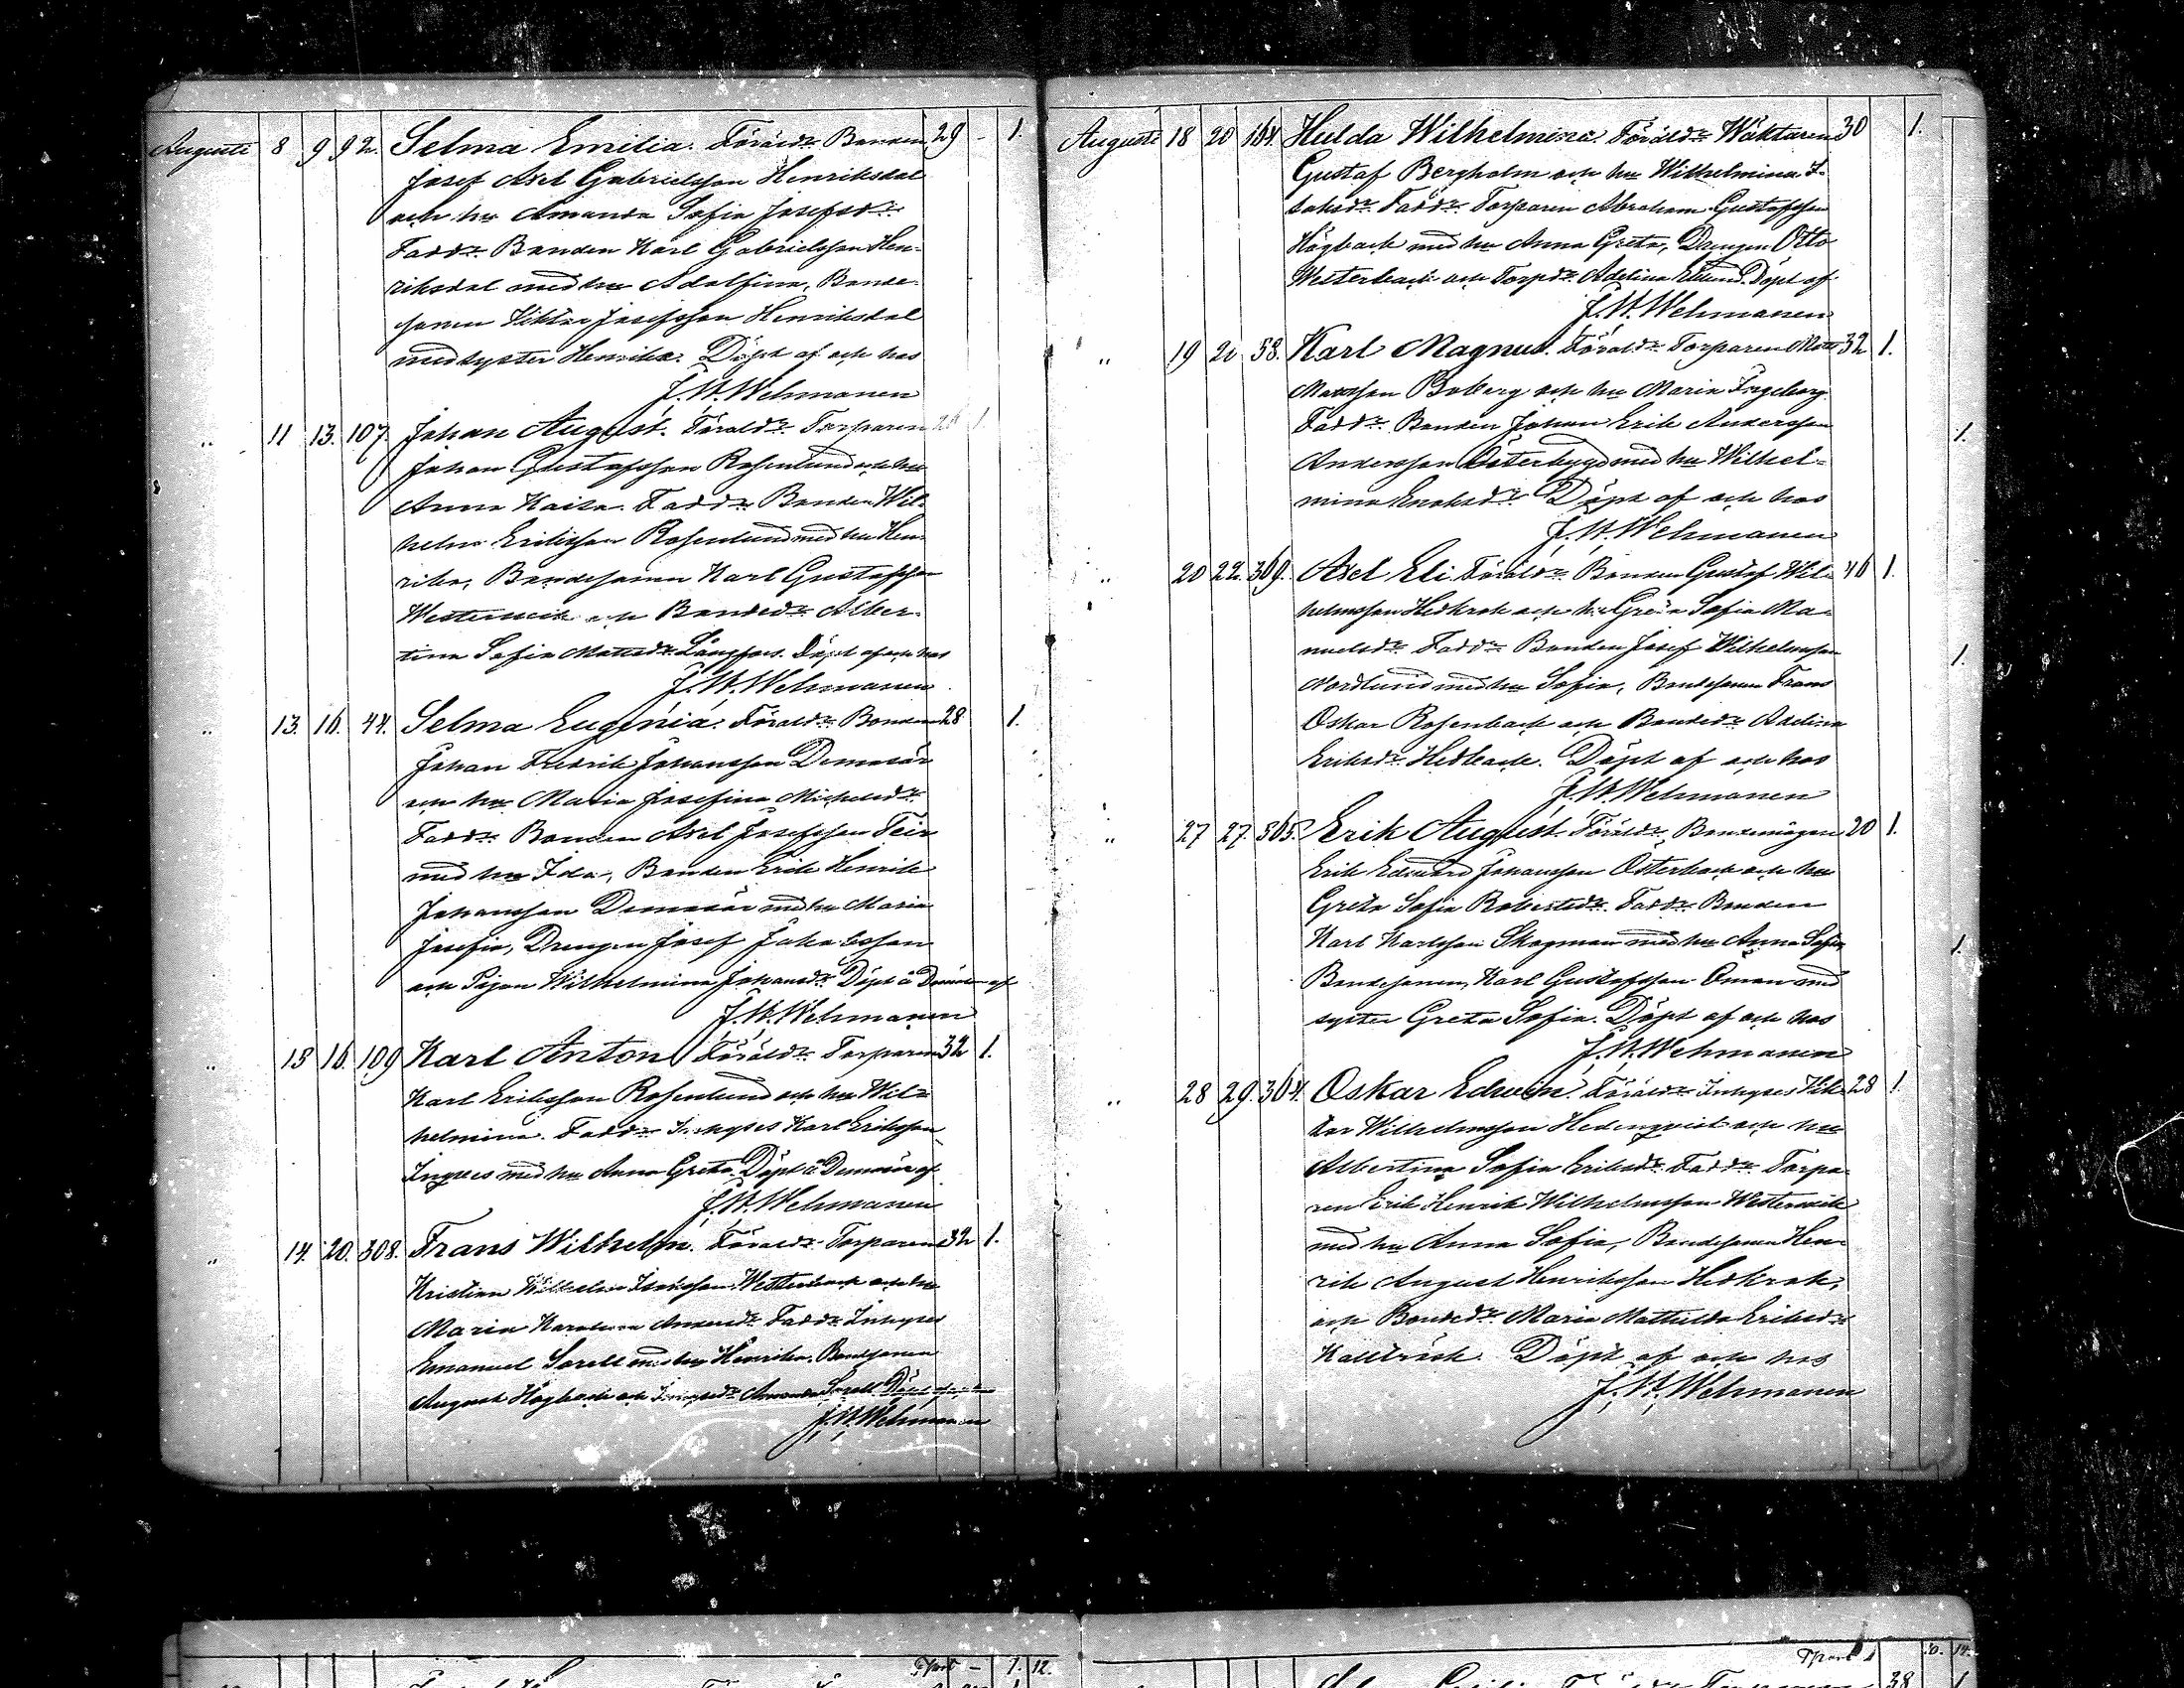 Augusti 8 9 92. Selma Emilia. Föräldr Bonden 29 - 1.
Josef Axel Gabrielsson Henriksdal
och hu Amanda Sofia Josefsdr
Faddr Bonden Karl Gabrielsson Hen-
riksdal med hu Adolfina, Bonde-
sonen Viktor Josefsson Henriksdal
med syster Henrika. Döpt af och hos
J. W. Wehmanen
" 11 13. 107. Johan August. Föräldr Torparen 1.
Johan Gustafsson Rosenlund och hu
Anna Kaisa. Faddr Bonden Wil-
helm Eriksson Rosenlund med hu Hen-
rika, Bondesonen Karl Gustafsson
Westerwik och Bondedr Alber-
tina Sofia Mattsdr Långfors. Döpt af och hos
J. W. Wehmanen
" 13. 16. 44. Selma Eugenia. Föräldr Bonden 28 1.
Johan Fredrik Johansson Demasär
och hu Maria Josefina Mickelsdr
Faddr Bonden Axel Josefsson Teir
med hu Ida, Bonden Erik Henrik
Johansson Demasär med hu Maria
Josefin, Drengen Josef Jakobsson
och Pigan Wilhelmina Johansdr Döpt å Demasär af
J. W. Wehmanen
" 13 16. 109 Karl Anton Föräldr Torparen 32 1.
Karl Eriksson Rosenlund och hu Wil-
helmina. Faddr Inhyses Karl Eriksson
Ingves med hu Anna Greta. Döpt å Demasär af
J. W. Wehmanen
" 14. 20. 308. Frans Wilhelm. Föräldr Torparen 32 1.
Kristian Wilhelm Isaksson Westerback och hu
Maria Karolina Andersdr Faddr Inhyses
Emanuel Sarell med hu Henrika, Bondsonen
August Högback och Inhysesdr Amanda Sarell Döpt af och hos
J. W. Wehmanen
Augusti 18 20 164. Hulda Wilhelmina. Föräldr Wäktaren 30 1.
Gustaf Bergholm och hu Wilhelmina I-
saksdr Faddr Torparen Abraham Gustafsson
Högback med hu Anna Greta, Drengen Otto
Westerback och Torpdr Adelina Eklund. Döpt af
J. W. Wehmanen
" 19 20 58. Karl Magnus. Föräldr Torparen Matts 32 1.
Mattsson Boberg och hu Maria Ingeborg
Faddr Bonden Johan Erik Andersson 1.
Andersson Österbygd med hu Wilhel-
mina Enoksdr Döpt af och hos
J. W. Wehmanen
" 20 22. 369. Axel Eli. Föräldr Bonden Gustaf Wil- 46 1.
helmsson Hedkrok och hu Greta Sofia Ma-
nuelsdr Faddr Bonden Josef Wilhelmsson 1.
Nordlund med hu Sofia, Bondesonen Frans
Oskar Rosenback och Bondedr Adelina
Eriksdr Hedback. Döpt af och hos
J. W. Wehmanen
" 27 27. 565. Erik August. Föräldr Bondemågen 20 1.
Erik Edvard Johansson Österback och hu
Greta Sofia Robertsdr Faddr Bonden
Karl Karlsson Skogman med hu Anna Sofia, 1.
Bondesonen Karl Gustafsson Öman med
syster Greta Sofia. Döpt af och hos
J. W. Wehmanen
" 28 29. 364. Oskar Edwin. Föräldr Inhyses Vik- 28 1.
tor Wilhelmsson Hedenqvist och hu
Albertina Sofia Eriksdr Faddr Torpa-
ren Erik Henrik Wilhelmsson Westerwik
med hu Anna Sofia, Bondesonen Hen-
rik August Henriksson Hedkrok,
och Bondedr Maria Mathilda Eriksdr
Kallträsk. Döpt af och hos
J. W. Wehmanen
Tspart - 7. 12.
Tspart 10. 12.
38 1